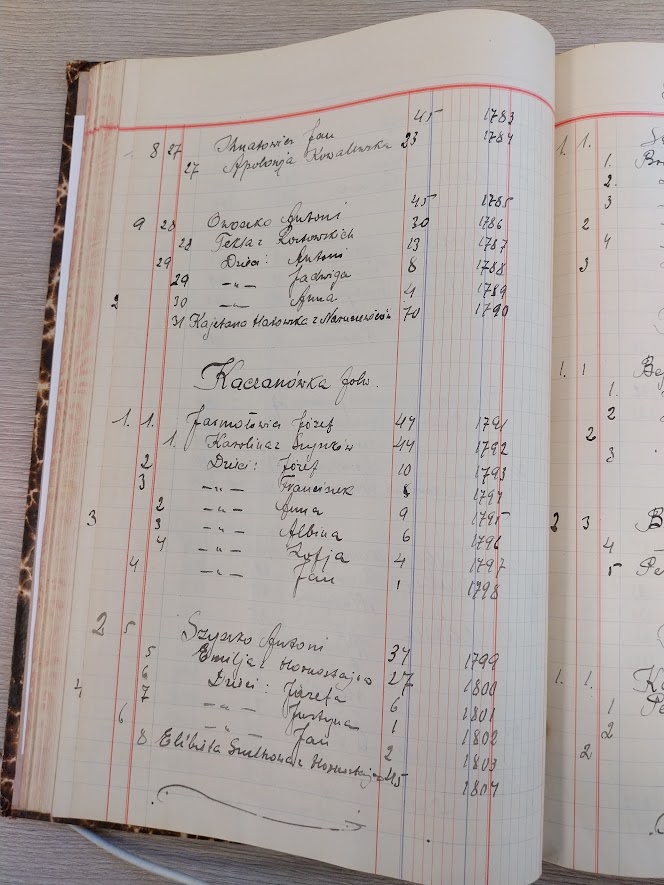 8 27 Ihnatowicz Jan 45 1783
27 Apolonja Kowalewska 23 1784
9 28 Owoszko Antoni 45 1785
28 Tekla z 30 1786
29 Dzieci: Antoni 13 1787
29 -"- Jadwiga 8 1788
2 30 -"- Anna 4 1789
31 Kajetana z Naruszewiczów 70 1790
Kaczanówka folw.
1. 1. Jarmołowicz Józef 47 1791
1. Karolina z Szyszków 44 1792
2 Dzieci: Józef 10 1793
3 -"- Franciszek 1794
2 -"- Anna 9 1795
3 3 -"- Albina 6 1796
4 -"- Zofja 4 1797
4 -"- Jan 1 1798
2 5 Szyszko Antoni 34 1799
5 Emilja z Hornostajów 27 1800
6 Dzieci: Józefa 6 1801
4 7 -"- Justyna 1 1802
6 -"- Jan 2 1803
8 Elżbieta z 45 1804
1. 1.
1.
2.
3
2
4
3
1. 1
1.
2
2
3
2 3
4
5
1. 1.
1
2
2